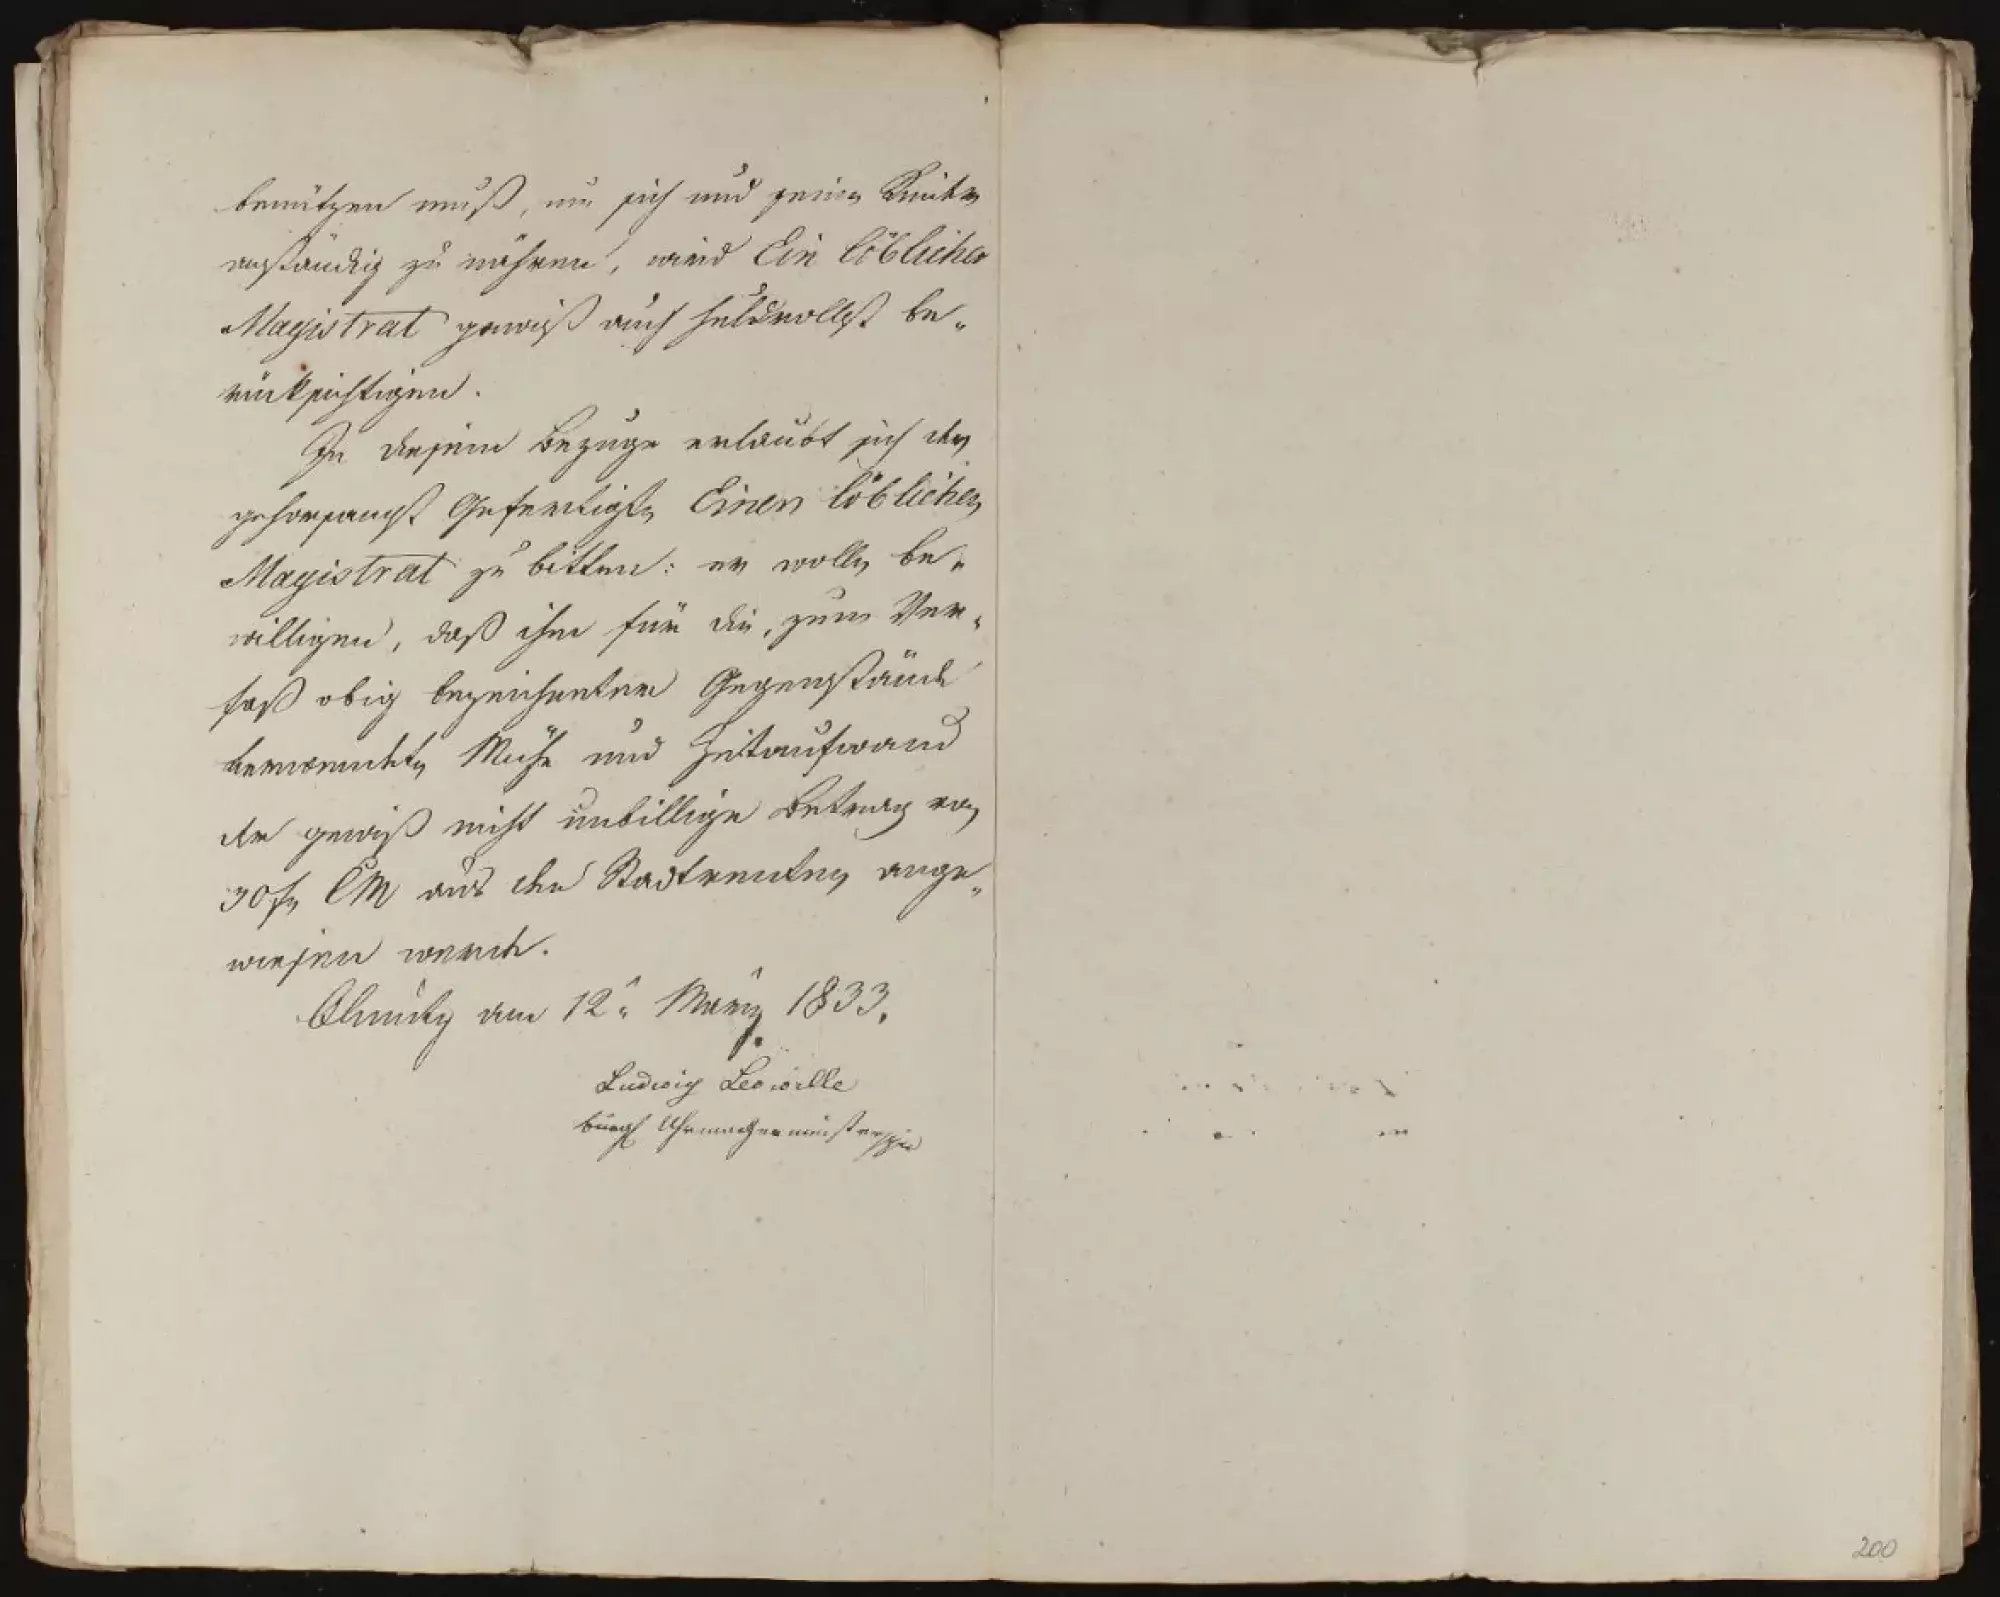 benützen muß, um sich und seine Familie
anständig zu nähren, wird Ein löblicher
Magistrat gewiß auch huldvollst be„
rücksichtigen.
In diesem Bezuge erlaubt sich der
gehorsamst Gefertigte Einen löblichen
Magistrat zu bitten: er wolle be„
willigen, daß ihm für die, zum Ver„
satz obig bezeichneten Gegenstände
verwendete Mühe und Zeitaufwand
der gewiß nicht unbillige Betrag von
30 f CM aus den Stadtrenten ange„
wiesen werde.
Olmütz am 12 März 1833.
Ludwig
bürgl Uhrmachermeister
200